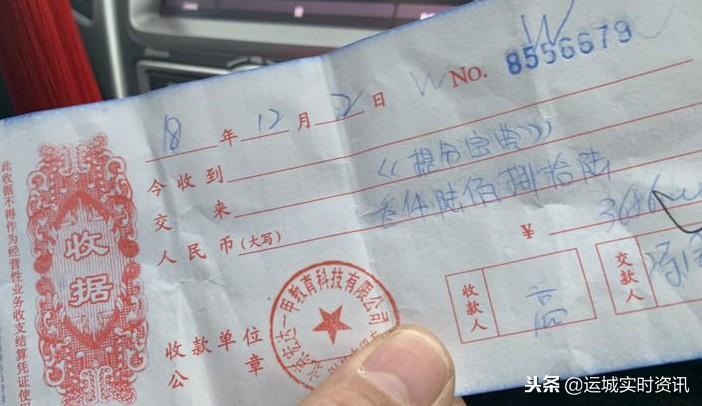 NO. 8556679
18年12月2日
今收到
交来《提分宝典》
人民币(大写)叁仟陆佰捌拾陆
￥3686
收款单位
公章
收款人 高
交款人
收据
此收据不得作为经营性业务收支结算凭证使用
甲教育科技有限公司
头条@运城实时资讯